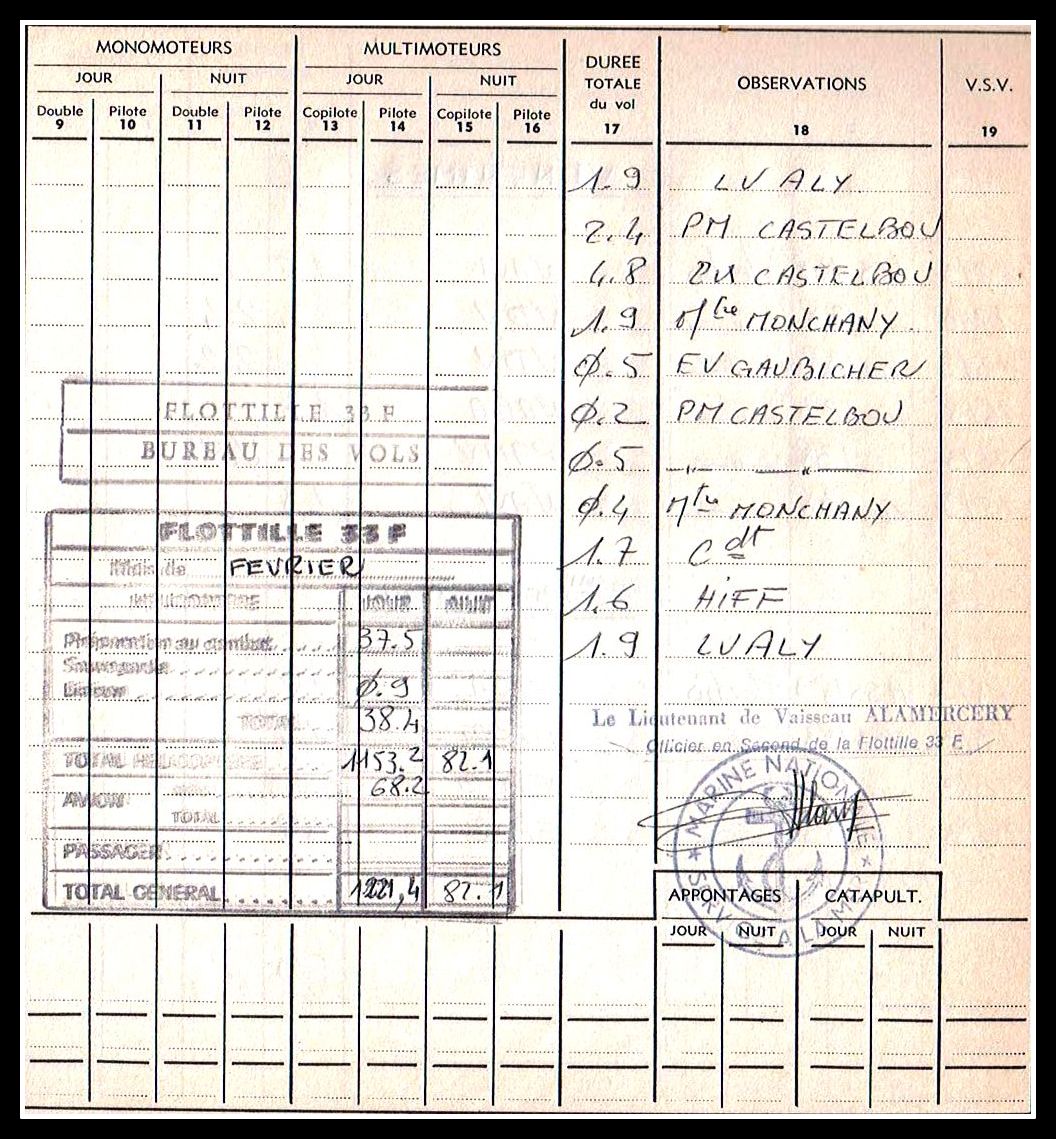 MONOMOTEURS MULTIMOTEURS DUREE TOTALE du vol OBSERVATIONS V.S.V.
JOUR NUIT JOUR NUIT
Double Pilote Double Pilote Copilote Pilote Copilote Pilote
9 10 11 12 13 14 15 16 17 18 19
1.9 LV ALY
2.4 PM CASTELBOU
4.8 CASTELBOU
1.9 Mtre MONCHANY
Ø.5 EV GAUBICHER
Ø.2 PM CASTELBOU
Ø.5 —„— —„—
Ø.4 Mtre MONCHANY
1.7 Cdt
1.6 HIFF
1.9 LV ALY
FLOTTILLE 33 F
BUREAU DES VOLS
FLOTTILLE 33 F
Mois de FEVRIER
JOUR NUIT
Préparation au combat 37.5
Sauvegarde
Liaison Ø.9
TOTAL 38.4
TOTAL HELICOPTERE 1153.2 82.1
AVION 68.2
TOTAL
PASSAGER
TOTAL GENERAL 1221,4 82.1
Le Lieutenant de Vaisseau ALAMERCERY
Officier en Second de la Flottille 33 F
MARINE NATIONALE
APPONTAGES CATAPULT.
JOUR NUIT JOUR NUIT